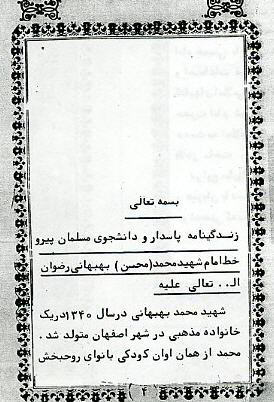 بسمه تعالی
زندگینامه پاسدار و دانشجوی مسلمان پیرو
خط امام شهید محمد (محسن) بهبهانی رضوان
الـ.. تعالی علیه
شهید محمد بهبهانی در سال ۱۳۴۰ در یک
خانواده مذهبی در شهر اصفهان متولد شد.
محمد از همان اوان کودکی بانوای روحبخش